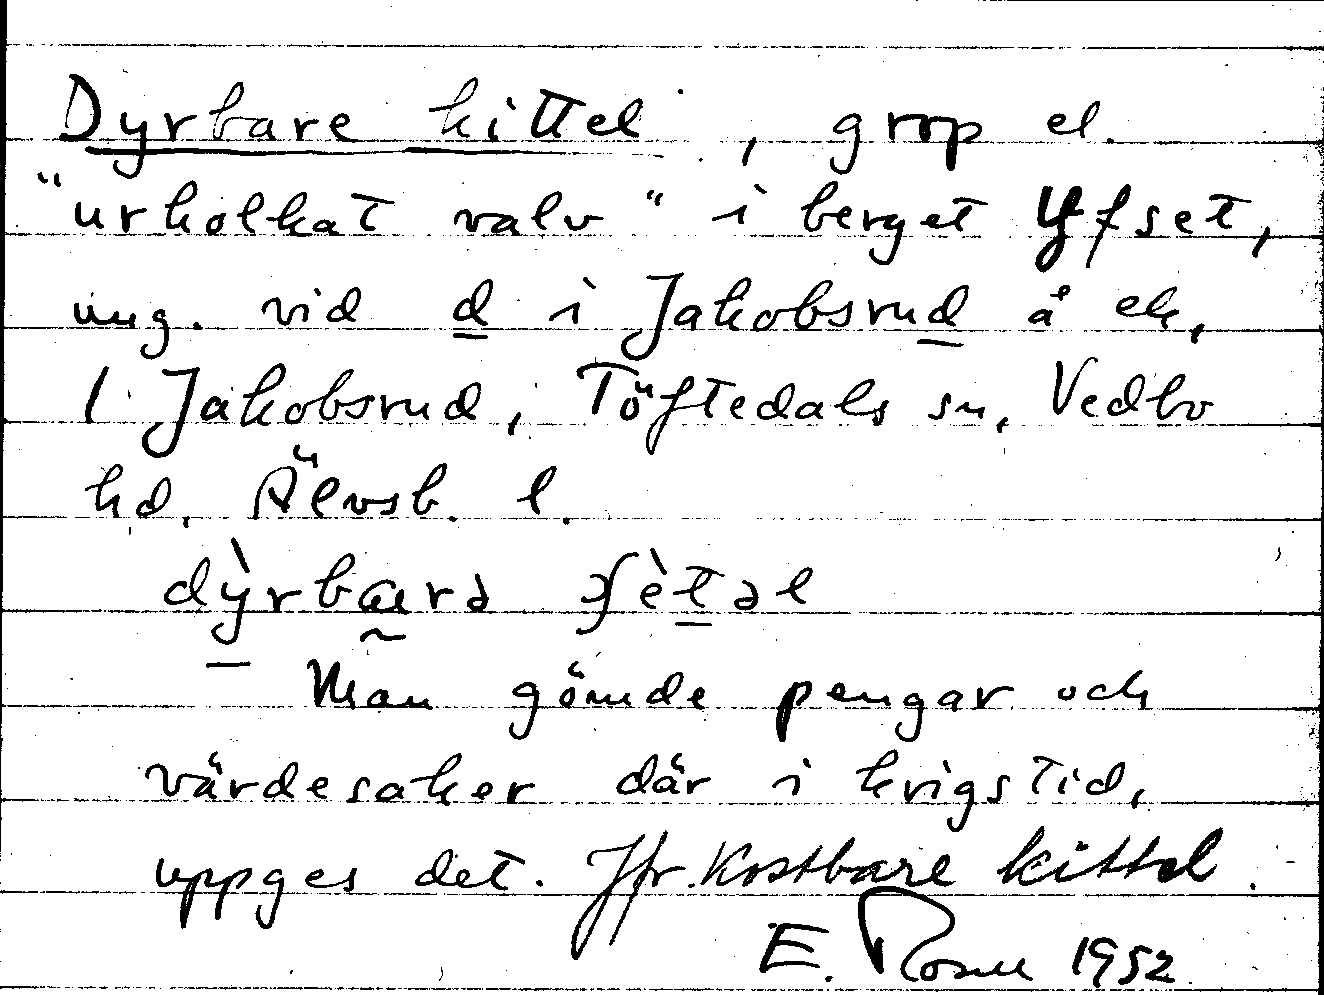 Dyrbare kittel, grop el.
"urholkat valv" i berget Yfset,
ung. vid d i Jakobsrud å ek,
1 Jakobsrud, Töftedals sn, Vedbo
hd. Älvsb. l.
Man gömde pengar och
värdesaker där i krigstid,
uppges det. Jfr. Kostbare kittel.
E. Rosell 1952